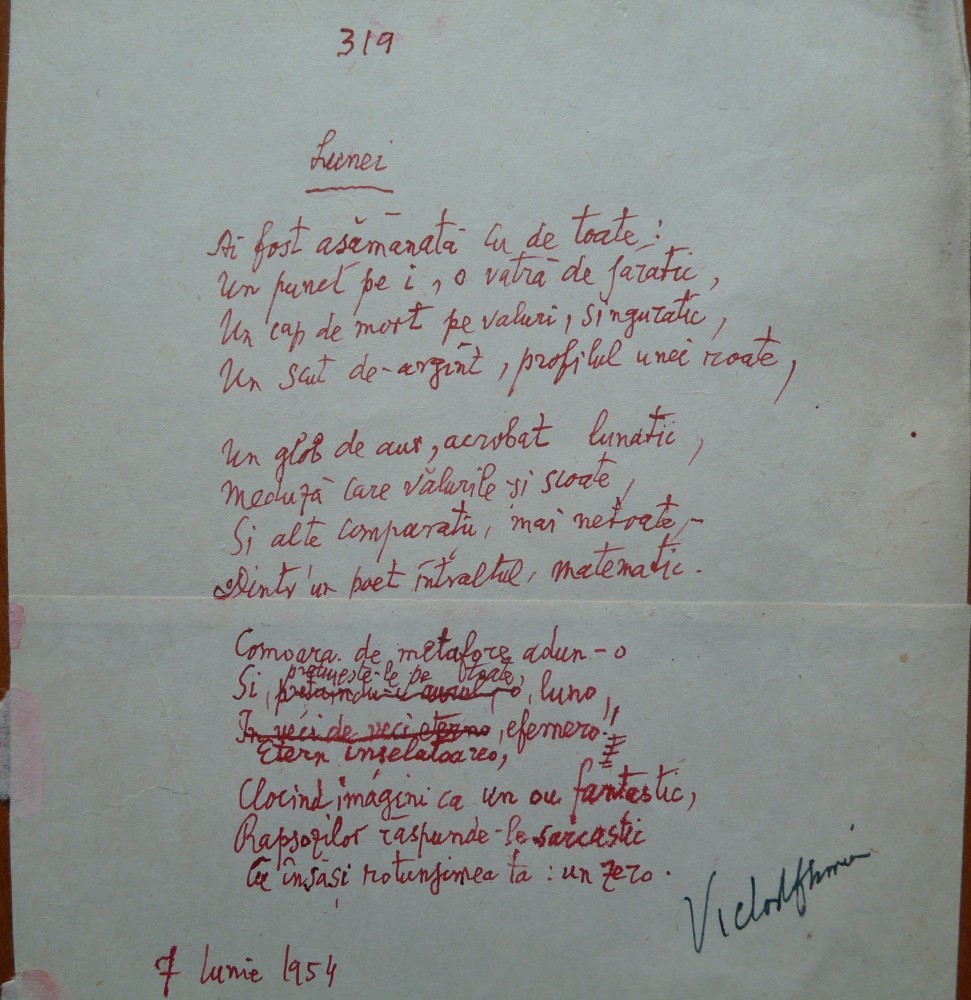 319
Lunei
Ai fost asămănată cu de toate:
Un punct pe i, o vatră de jăratic,
Un cap de mort pe valuri, singuratic,
Un scut de-argint, profilul unei roate,
Un glob de aur, acrobat lunatic,
Meduză care vălurile-și scoate,
Și alte comparații, mai netoate,-
Dintr'un poet întraltul, matematic.
Comoara de metafore adun-o
prețuește-le pe toate,
Și, o, luno,
In veci de veci eterno, efemero!
Etern inșelatoareo,
Clocind imágini ca un ou fantastic,
Rapsozilor răspunde-le sarcastic
Cu însăși rotunjimea ta: un zero.
Victor Eftimiu
7 Iunie 1954